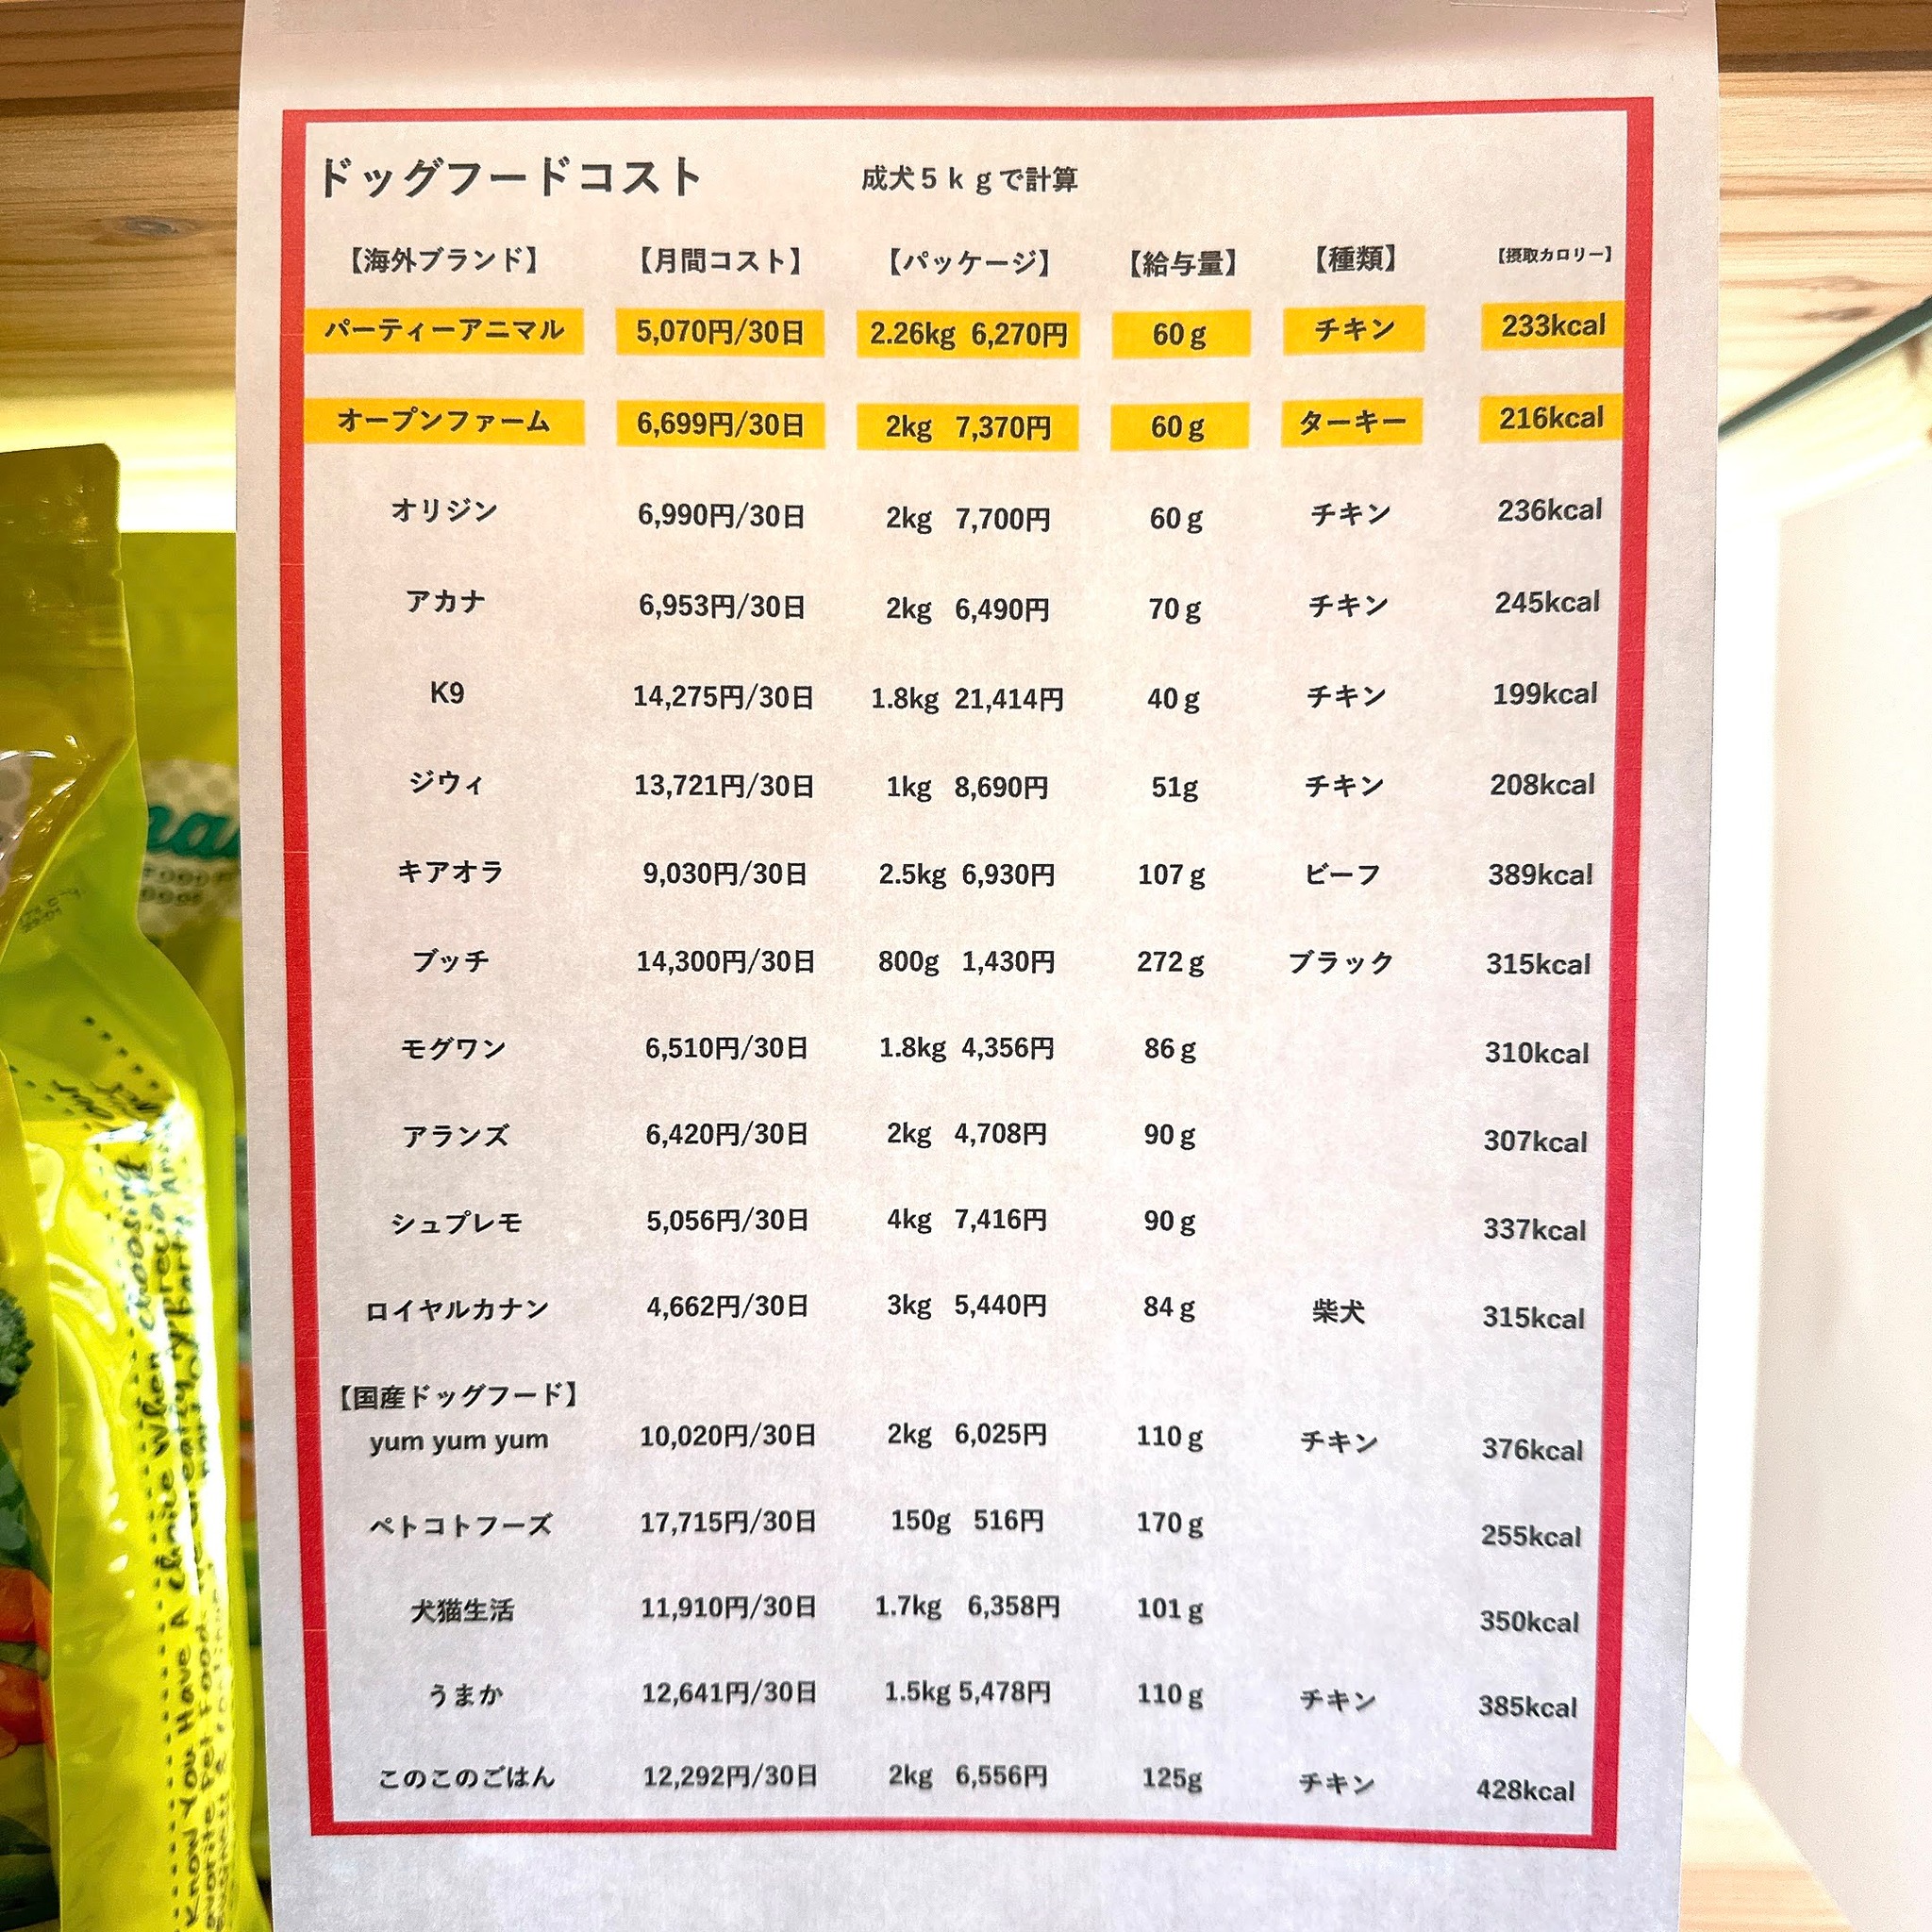 ドッグフードコスト 成犬5kgで計算
【海外ブランド】 【月間コスト】 【パッケージ】 【給与量】 【種類】 【摂取カロリー】
パーティーアニマル 5,070円/30日 2.26kg 6,270円 60g チキン 233kcal
オープンファーム 6,699円/30日 2kg 7,370円 60g ターキー 216kcal
オリジン 6,990円/30日 2kg 7,700円 60g チキン 236kcal
アカナ 6,953円/30日 2kg 6,490円 70g チキン 245kcal
K9 14,275円/30日 1.8kg 21,414円 40g チキン 199kcal
ジウィ 13,721円/30日 1kg 8,690円 51g チキン 208kcal
キアオラ 9,030円/30日 2.5kg 6,930円 107g ビーフ 389kcal
ブッチ 14,300円/30日 800g 1,430円 272g ブラック 315kcal
モグワン 6,510円/30日 1.8kg 4,356円 86g 310kcal
アランズ 6,420円/30日 2kg 4,708円 90g 307kcal
シュプレモ 5,056円/30日 4kg 7,416円 90g 337kcal
ロイヤルカナン 4,662円/30日 3kg 5,440円 84g 柴犬 315kcal
【国産ドッグフード】
yum yum yum 10,020円/30日 2kg 6,025円 110g チキン 376kcal
ペトコトフーズ 17,715円/30日 150g 516円 170g 255kcal
犬猫生活 11,910円/30日 1.7kg 6,358円 101g 350kcal
うまか 12,641円/30日 1.5kg 5,478円 110g チキン 385kcal
このこのごはん 12,292円/30日 2kg 6,556円 125g チキン 428kcal
Know You Have A Choice When Choosing